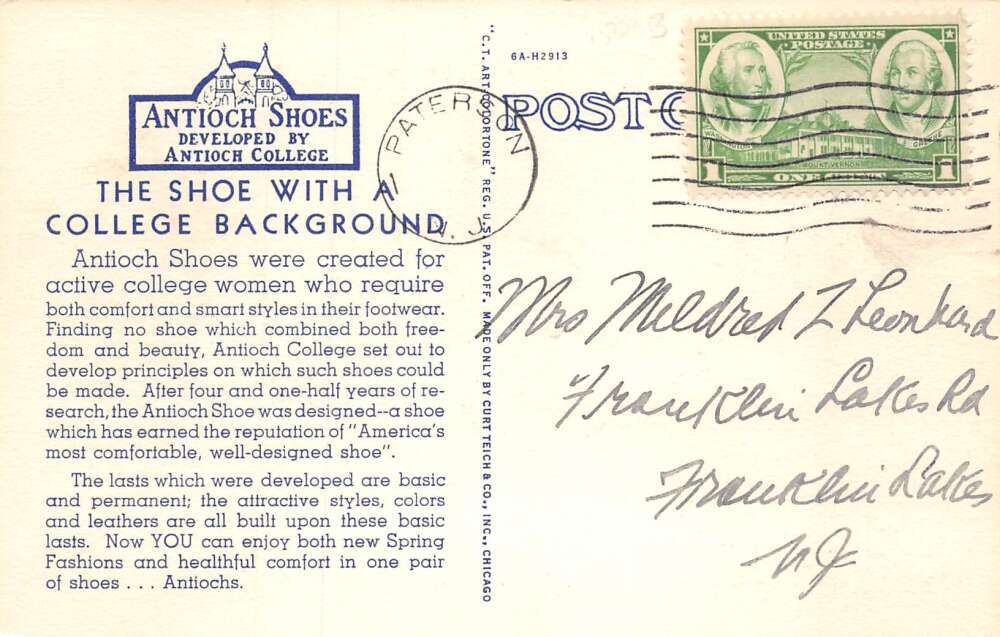 ANTIOCH SHOES
DEVELOPED BY
ANTIOCH COLLEGE
THE SHOE WITH A
COLLEGE BACKGROUND
Antioch Shoes were created for
active college women who require
both comfort and smart styles in their footwear.
Finding no shoe which combined both free-
dom and beauty, Antioch College set out to
develop principles on which such shoes could
be made. After four and one-half years of re-
search, the Antioch Shoe was designed--a shoe
which has earned the reputation of "America's
most comfortable, well-designed shoe".
The lasts which were developed are basic
and permanent; the attractive styles, colors
and leathers are all built upon these basic
lasts. Now YOU can enjoy both new Spring
Fashions and healthful comfort in one pair
of shoes . . . Antiochs.
"C.T. ART-COLORTONE" REG. U.S. PAT. OFF. MADE ONLY BY CURT TEICH & CO., INC., CHICAGO
6A-H2913
POST C
PATERSON
N. J.
UNITED STATES
POSTAGE
WASHINGTON
GREENE
MOUNT VERNON
1 ONE CENT 1
Mrs Mildred Z Leonhard
Franklin Lakes Rd
Franklin Lakes
NJ